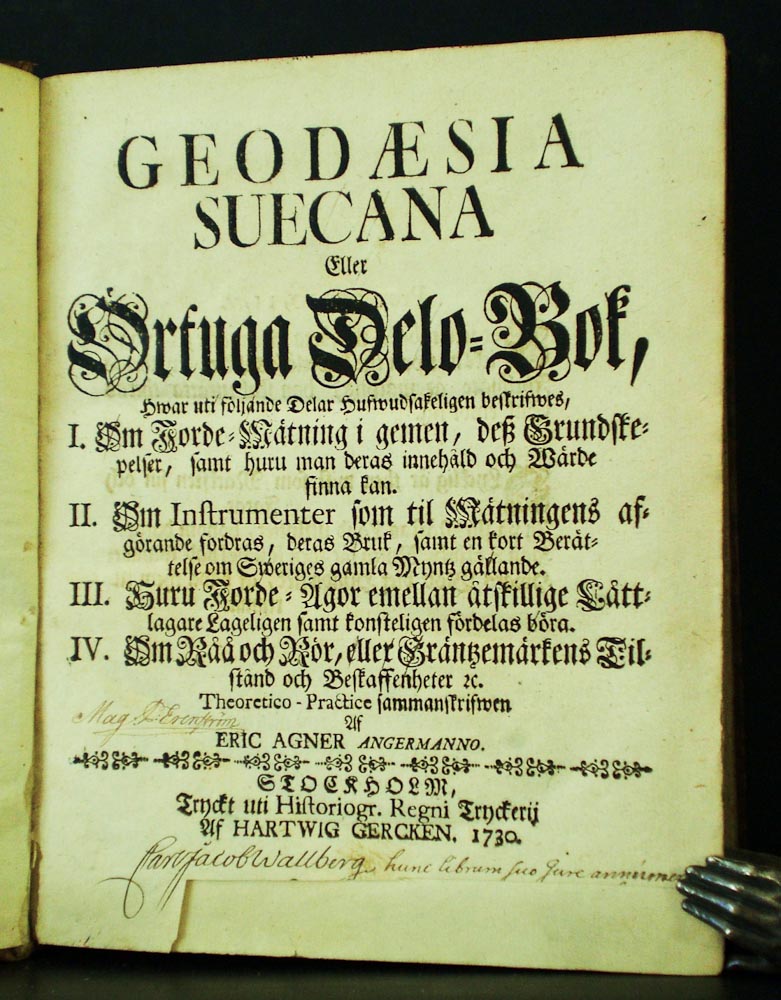 GEODÆSIA
SUECANA
Eller
Örtuga Delo-Bok,
Hwar uti följande Delar Hufwudsakeligen beskrifwes,
I. Om Jorde-Mätning i gemen, deß Grundske-
pelser, samt huru man deras innehåld och Wärde
finna kan.
II. Om Instrumenter som til Mätningens af-
görande fordras, deras Bruk, samt en kort Berät-
telse om Sweriges gamla Myntz gällande.
III. Huru Jorde-Ägor emellan åtskillige Lått-
lagare Lageligen samt konsteligen fördelas böra.
IV. Om Råå och Rör, eller Gräntzemärkens Til-
stånd och Beskaffenheter ꝛc.
Theoretico-Practice sammanskrifwen
Mag
Af
ERIC AGNER ANGERMANNO.
STOCKHOLM,
Tryckt uti Historiogr. Regni Tryckerij
Af HARTWIG GERCKEN. 1730.
Carl Jacob Wallberg, hunc librum suo jure